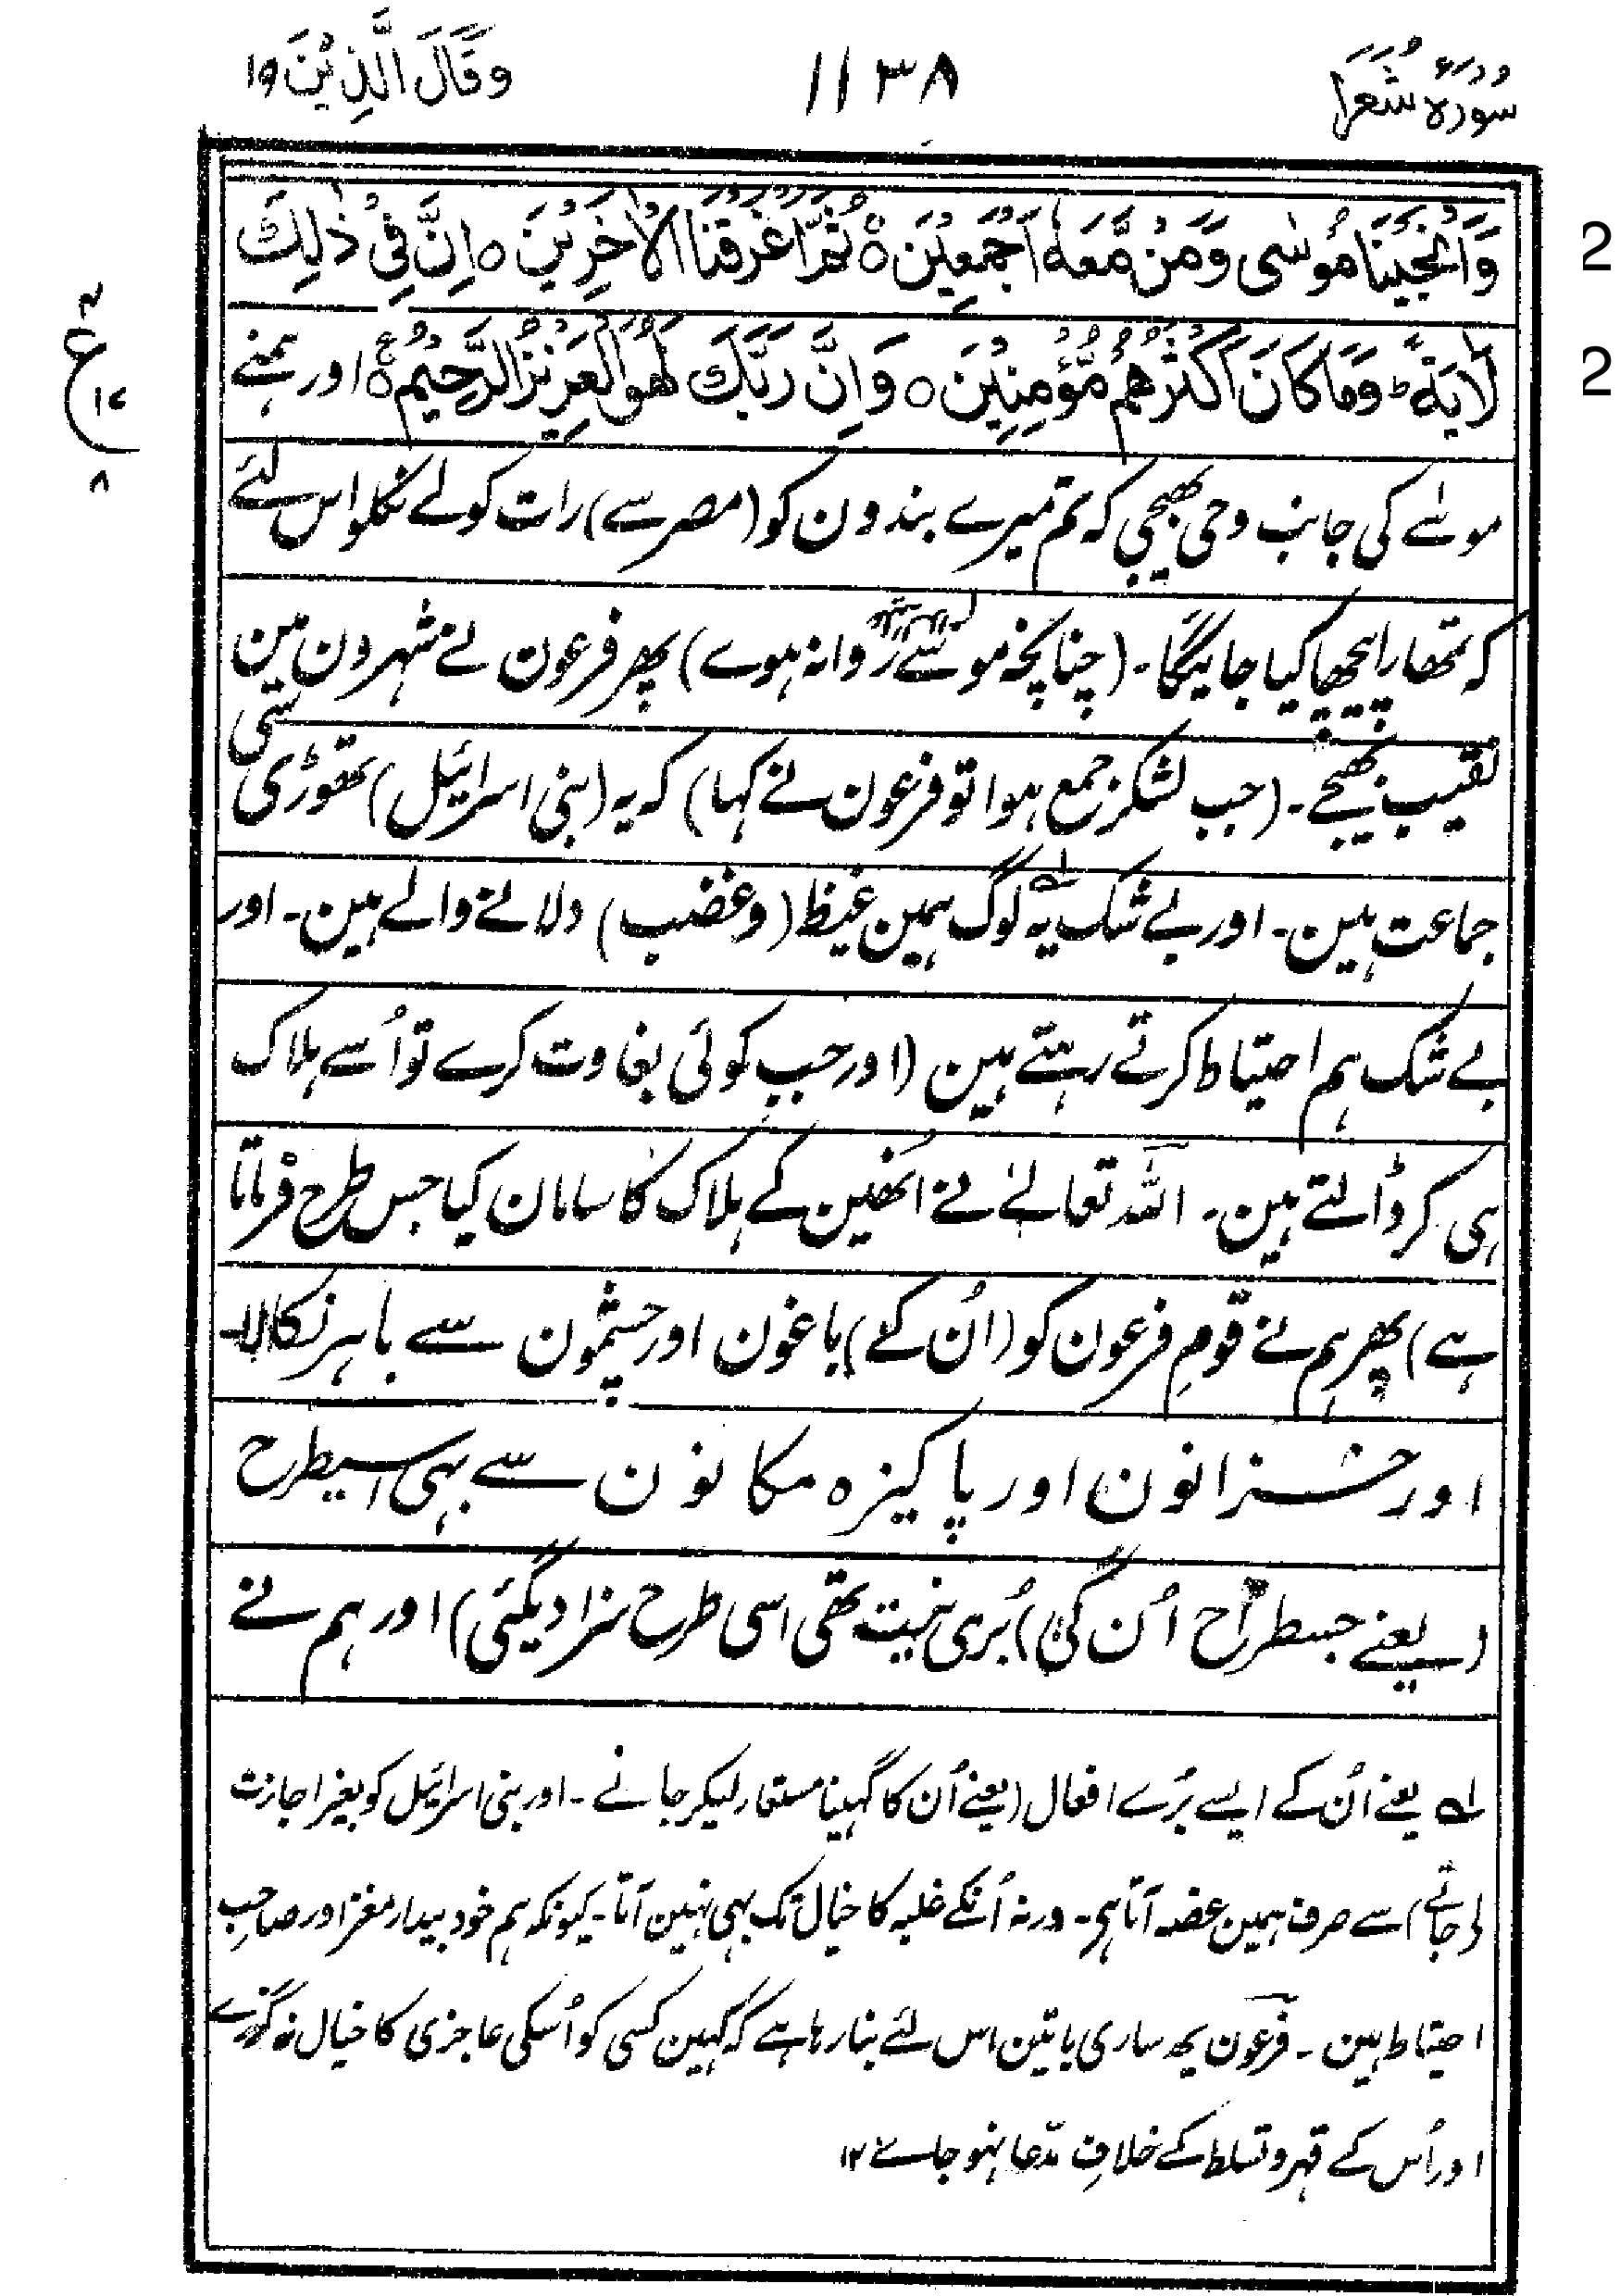 سُورَۃ شُعَرَا ١١٣٨ وَقَالَ الَّذِیْنَ ١٩
وَاَنْجَیْنَا مُوْسٰی وَمَنْ مَّعَہٗٓ اَجْمَعِیْنَ ۝ ثُمَّ اَغْرَقْنَا الْاٰخَرِیْنَ ۝ اِنَّ فِیْ ذٰلِکَ 2
لَاٰیَۃً ؕ وَمَا کَانَ اَکْثَرُھُمْ مُّؤْمِنِیْنَ ۝ وَاِنَّ رَبَّکَ لَھُوَ الْعَزِیْزُ الرَّحِیْمُ ۝ اور ہمنے 2
ع
موسٰے کی جانب وحی بھیجی کہ تم میرے بندون کو (مصر سے) رات کو لے نکلو اس لئے
کہ تمھارا پیچھا کیا جائیگا۔ (چنانچہ موسٰے روانہ ہوے) پھر فرعون نے شہرون مین
نقیب بھیجے۔ (جب لشکر جمع ہوا تو فرعون نے کہا) کہ یہ (بنی اسرائیل) تھوڑی سی
جماعت ہین۔ اور بے شک یہ لوگ ہمین غیظ (وغضب) دلانے والے ہین۔ اور
بے شک ہم احتیاط کرتے رہتے ہین (اور جب کوئی بغاوت کرے تو اُسے ہلاک
ہی کرڈالتے ہین۔ اللہ تعالےٰ نے انھین کے ہلاک کا سامان کیا جس طرح فرماتا
ہے) پھر ہم نے قومِ فرعون کو (اُن کے) باغون اور چشمون سے باہر نکالا۔
اور خزانون اور پاکیزہ مکانون سے بہی اسیطرح
(یعنے جسطرح اُن کی) بُری نیت تھی اسی طرح سزا دیگئی) اور ہم نے
لہ یعنے اُن کے ایسے بُرے افعال (یعنے اُن کا گہینا مستعار لیکر جانے۔ اور بنی اسرائیل کو بغیر اجازت
لی جاتے) سے صرف ہمین غصہ آتا ہی۔ ورنہ اُنکے غلبہ کا خیال تک بہی نہین آتا۔ کیونکہ ہم خود بیدار مغز اور صاحبِ
احتیاط ہین۔ فرعون یھ ساری باتین اس لئے بنا رہا ہے کہ کہین کسی کو اُسکی عاجزی کا خیال نہ گزرے
اور اُس کے قہر و تسلط کے خلافِ مدّعا نہو جاے ١٢